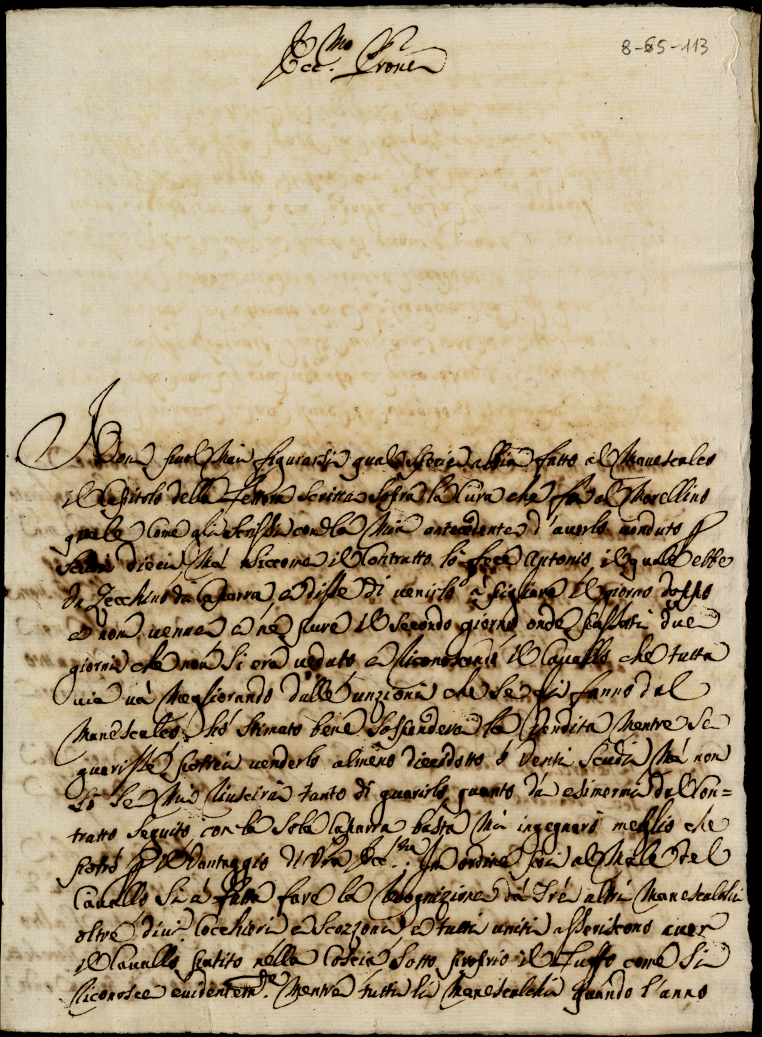 8-65-113
Ecc.mo Prone
Non può Mai figurarsi qual specie abbia fatto al Manescalco
il Capitolo della lettera scritta sopra la Cura che fa al Morellino
quale Come gli scrissi con la Mia antecedente d'averlo venduto p
scudi dieci, Mà siccome il Contratto lo fece Antonio, il quale ebbe
un Zecchino di Caparra, e disse di venirlo à pigliare il giorno doppo
e non venne e nè pure il secondo giorno onde passati due
giorni che non si era veduto e riconoscendo il Cavallo che tutta
via và Megliorando dalle unzioni che se gli fanno dal
Manescalco, hò stimato bene sospendere la Vendita Mentre se
guarisse potrei venderlo almeno dicidotto ò Venti Scudi, Mà non
sò se Mai riuscirà tanto di guarirlo, quanto da esimermi dal Con=
tratto seguito con la sola Caparra basta Mi ingegnerò meglio che
potrò p il Vantaggio di Vra Ecc.za In ordine poi al Male del
Cavallo si è fatta fare la recognizione da Trè altri Manescalchi
oltre div.i Cocchieri e Scozzoni e tutti uniti asseriscono aver
il Cavallo patito nella Coscia sotto proprio il Tuffo come si
riconosce evidentem.te Mentre tutti li Manescalchi quando l'anno